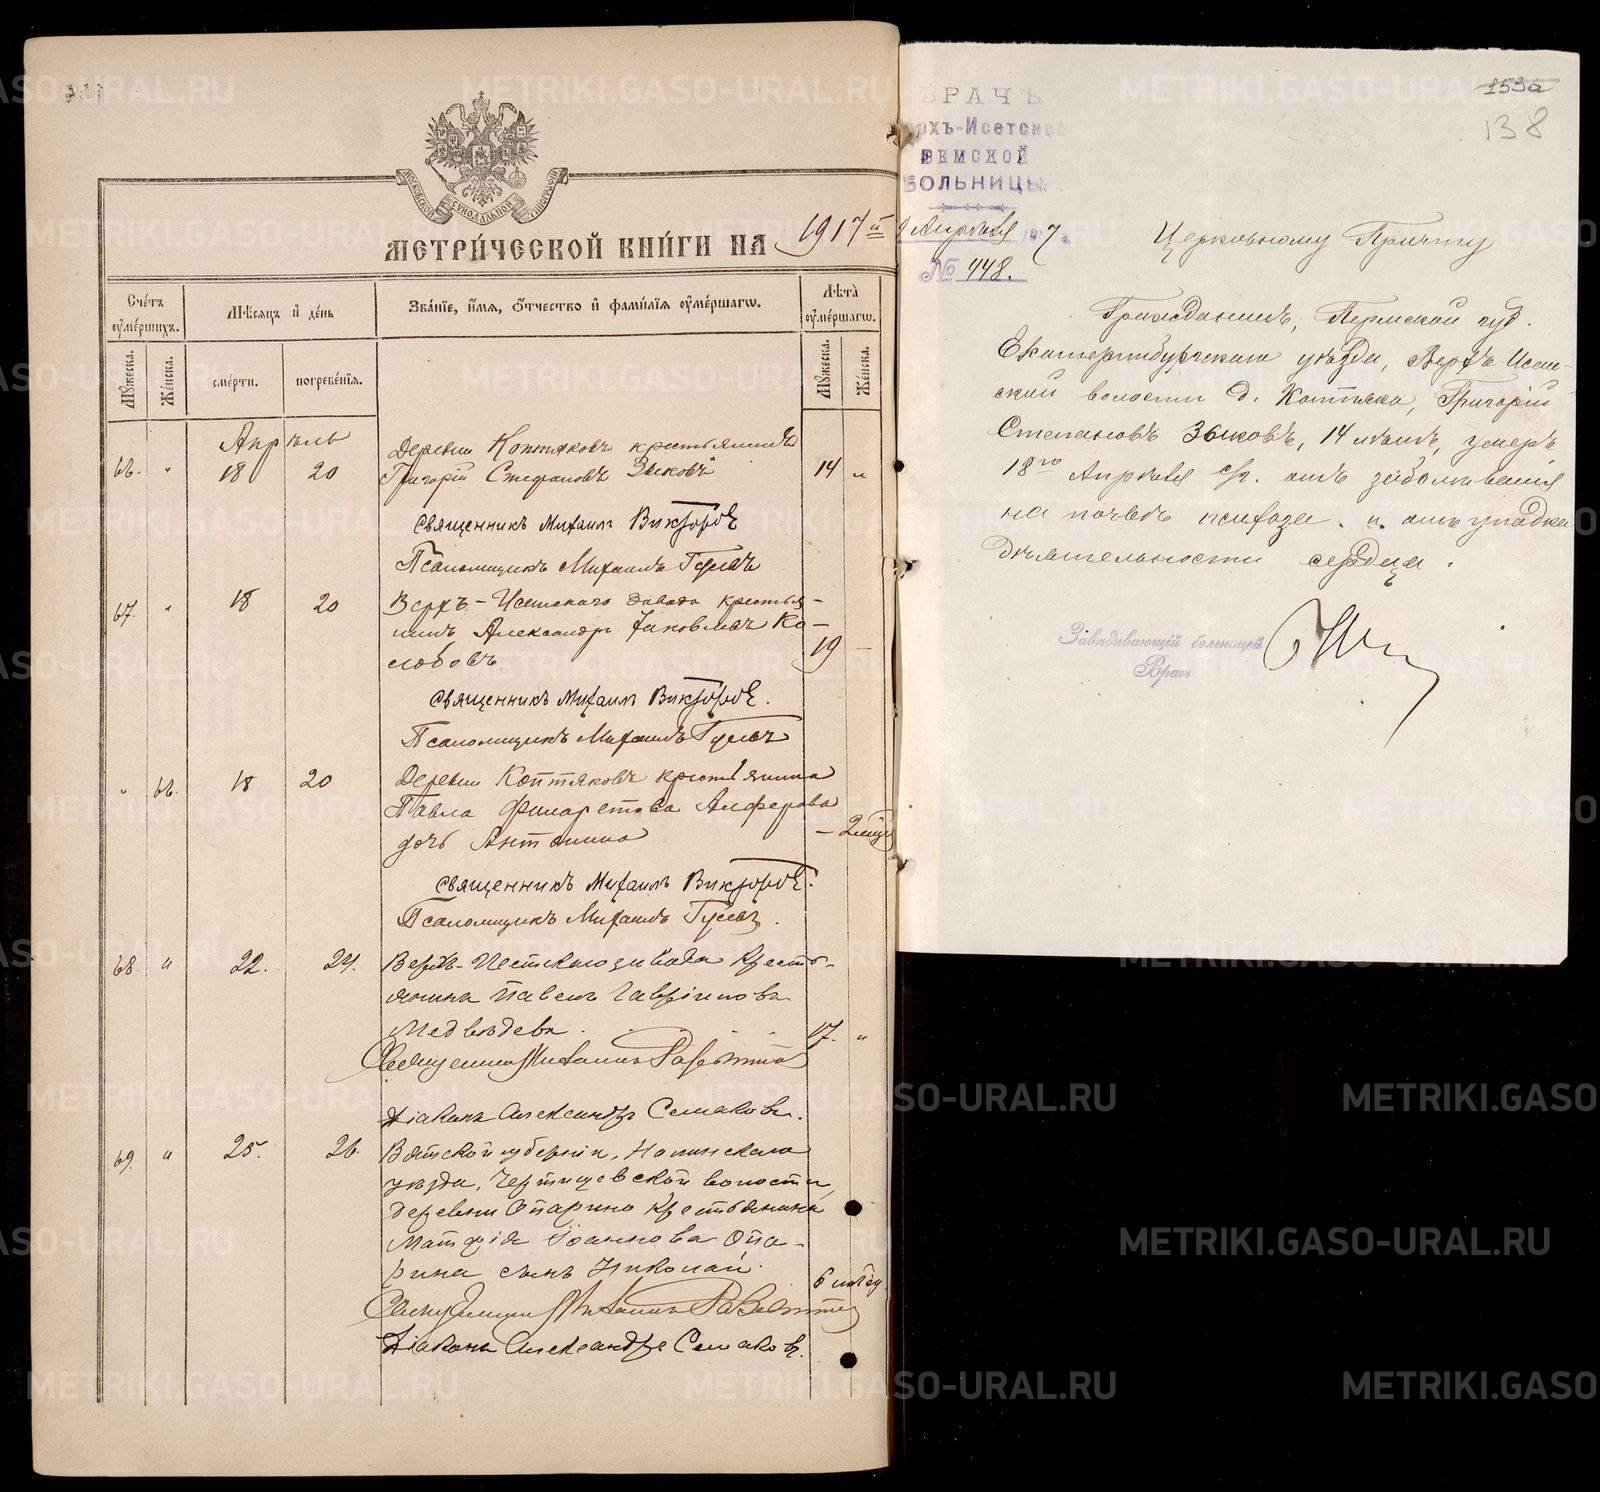 МЕТРИЧЕСКОЙ КНИГИ НА 1917й
МОСКОВСКОЙ СУНОДАЛЬНОЙ ТИПОГРАФІИ
Счетъ оумершихъ.
Мѣсяцъ и день
Званіе, имя, отчество и фамилія оумершагω.
Лѣта оумершагω.
Мужеска.
Женска.
смерти.
погребенія.
Мужеска.
Женска.
Апрѣль
66. " 18 20 Деревни Коптяковъ крестьянинъ
Григорій Стефановъ Зыковъ 14 "
Священникъ Михаилъ Викторовъ
Псаломщикъ Михаилъ Гусевъ
67. " 18 20 Верхъ-Исетскаго завода крестья-
нинъ Александръ Іаковлевъ Ко-
лобовъ 19 -
Священникъ Михаилъ Викторовъ.
Псаломщикъ Михаилъ Гусевъ
" 66. 18 20 Деревни Коптяковъ крестьянина
Павла Филаретова Алферова
дочь Антонина - 2 мѣс
Священникъ Михаилъ Викторовъ.
Псаломщикъ Михаилъ Гусевъ.
68. " 22. 24. Верхъ-Исетскаго завода кресть-
янинъ Павелъ Гавріиловъ
Медвѣдевъ. 17. "
Священникъ Михаилъ
Діаконъ Александръ Семаковъ.
69. " 25. 26. Вятской губерніи, Нолинскаго
уѣзда, Чертищевской волости,
деревни Опарино крестьянина
Матфія Іоаннова Опа-
рина сынъ Николай. 6 мѣсяц
Священникъ Михаилъ
Діаконъ Александръ Семаковъ.
153а
138
ВРАЧЪ
рхъ-Исетской
ЗЕМСКОЙ
БОЛЬНИЦЫ
Апрѣля 1917 г.
№ 448.
Церковному Причту
Гражданинъ, Пермской губ.
Екатеринбургскаго уѣзда, Верхъ-Исет-
ской волости д. Коптяка, Григорій
Степановъ Зыковъ, 14 лѣтъ, умеръ
18го Апрѣля с/г. отъ заболѣванія
на почвѣ психоза. и отъ упадка
дѣятельности сердца.
Завѣдывающій больницей
Врачъ
METRIKI.GASO-URAL.RU